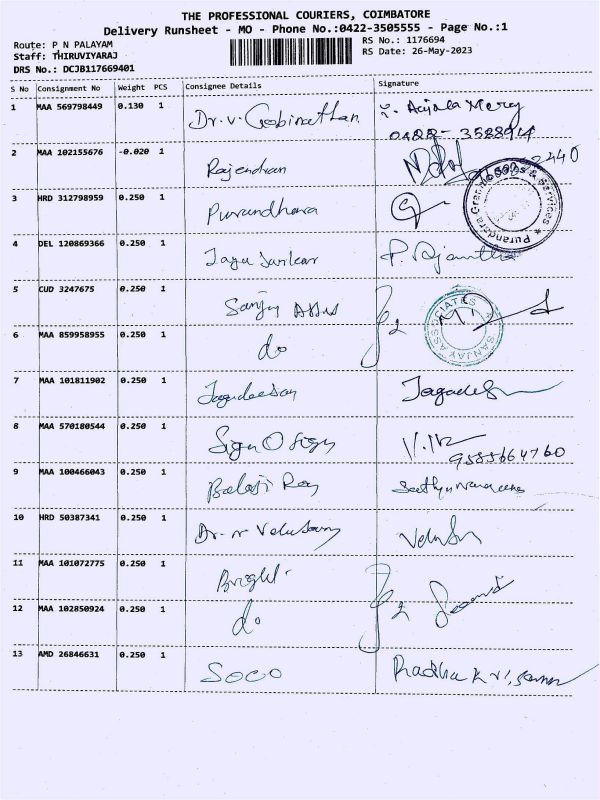 THE PROFESSIONAL COURIERS, COIMBATORE
Delivery Runsheet - MO - Phone No.:0422-3505555 - Page No.:1
Route: P N PALAYAM
RS No.: 1176694
Staff: THIRUVIYARAJ
RS Date: 26-May-2023
DRS No.: DCJB117669401
S No Consignment No Weight PCS Consignee Details Signature
1 MAA 569798449 0.130 1 Dr. V. Gobinathan
2 MAA 102155676 -0.020 1 Rajendran
3 HRD 312798959 0.250 1 Purandhara
Purandara Services
4 DEL 120869366 0.250 1
5 CUD 3247675 0.250 1 Sanjay
SANJAY ASSOCIATES
6 MAA 859958955 0.250 1 do
7 MAA 101811902 0.250 1 Jagadeesan
8 MAA 570180544 0.250 1 Sign O Sign
9585664760
9 MAA 100466043 0.250 1 Balaji
10 HRD 50387341 0.250 1 Velusamy
11 MAA 101072775 0.250 1 Bright
12 MAA 102850924 0.250 1 do
13 AMD 26846631 0.250 1 SOCO